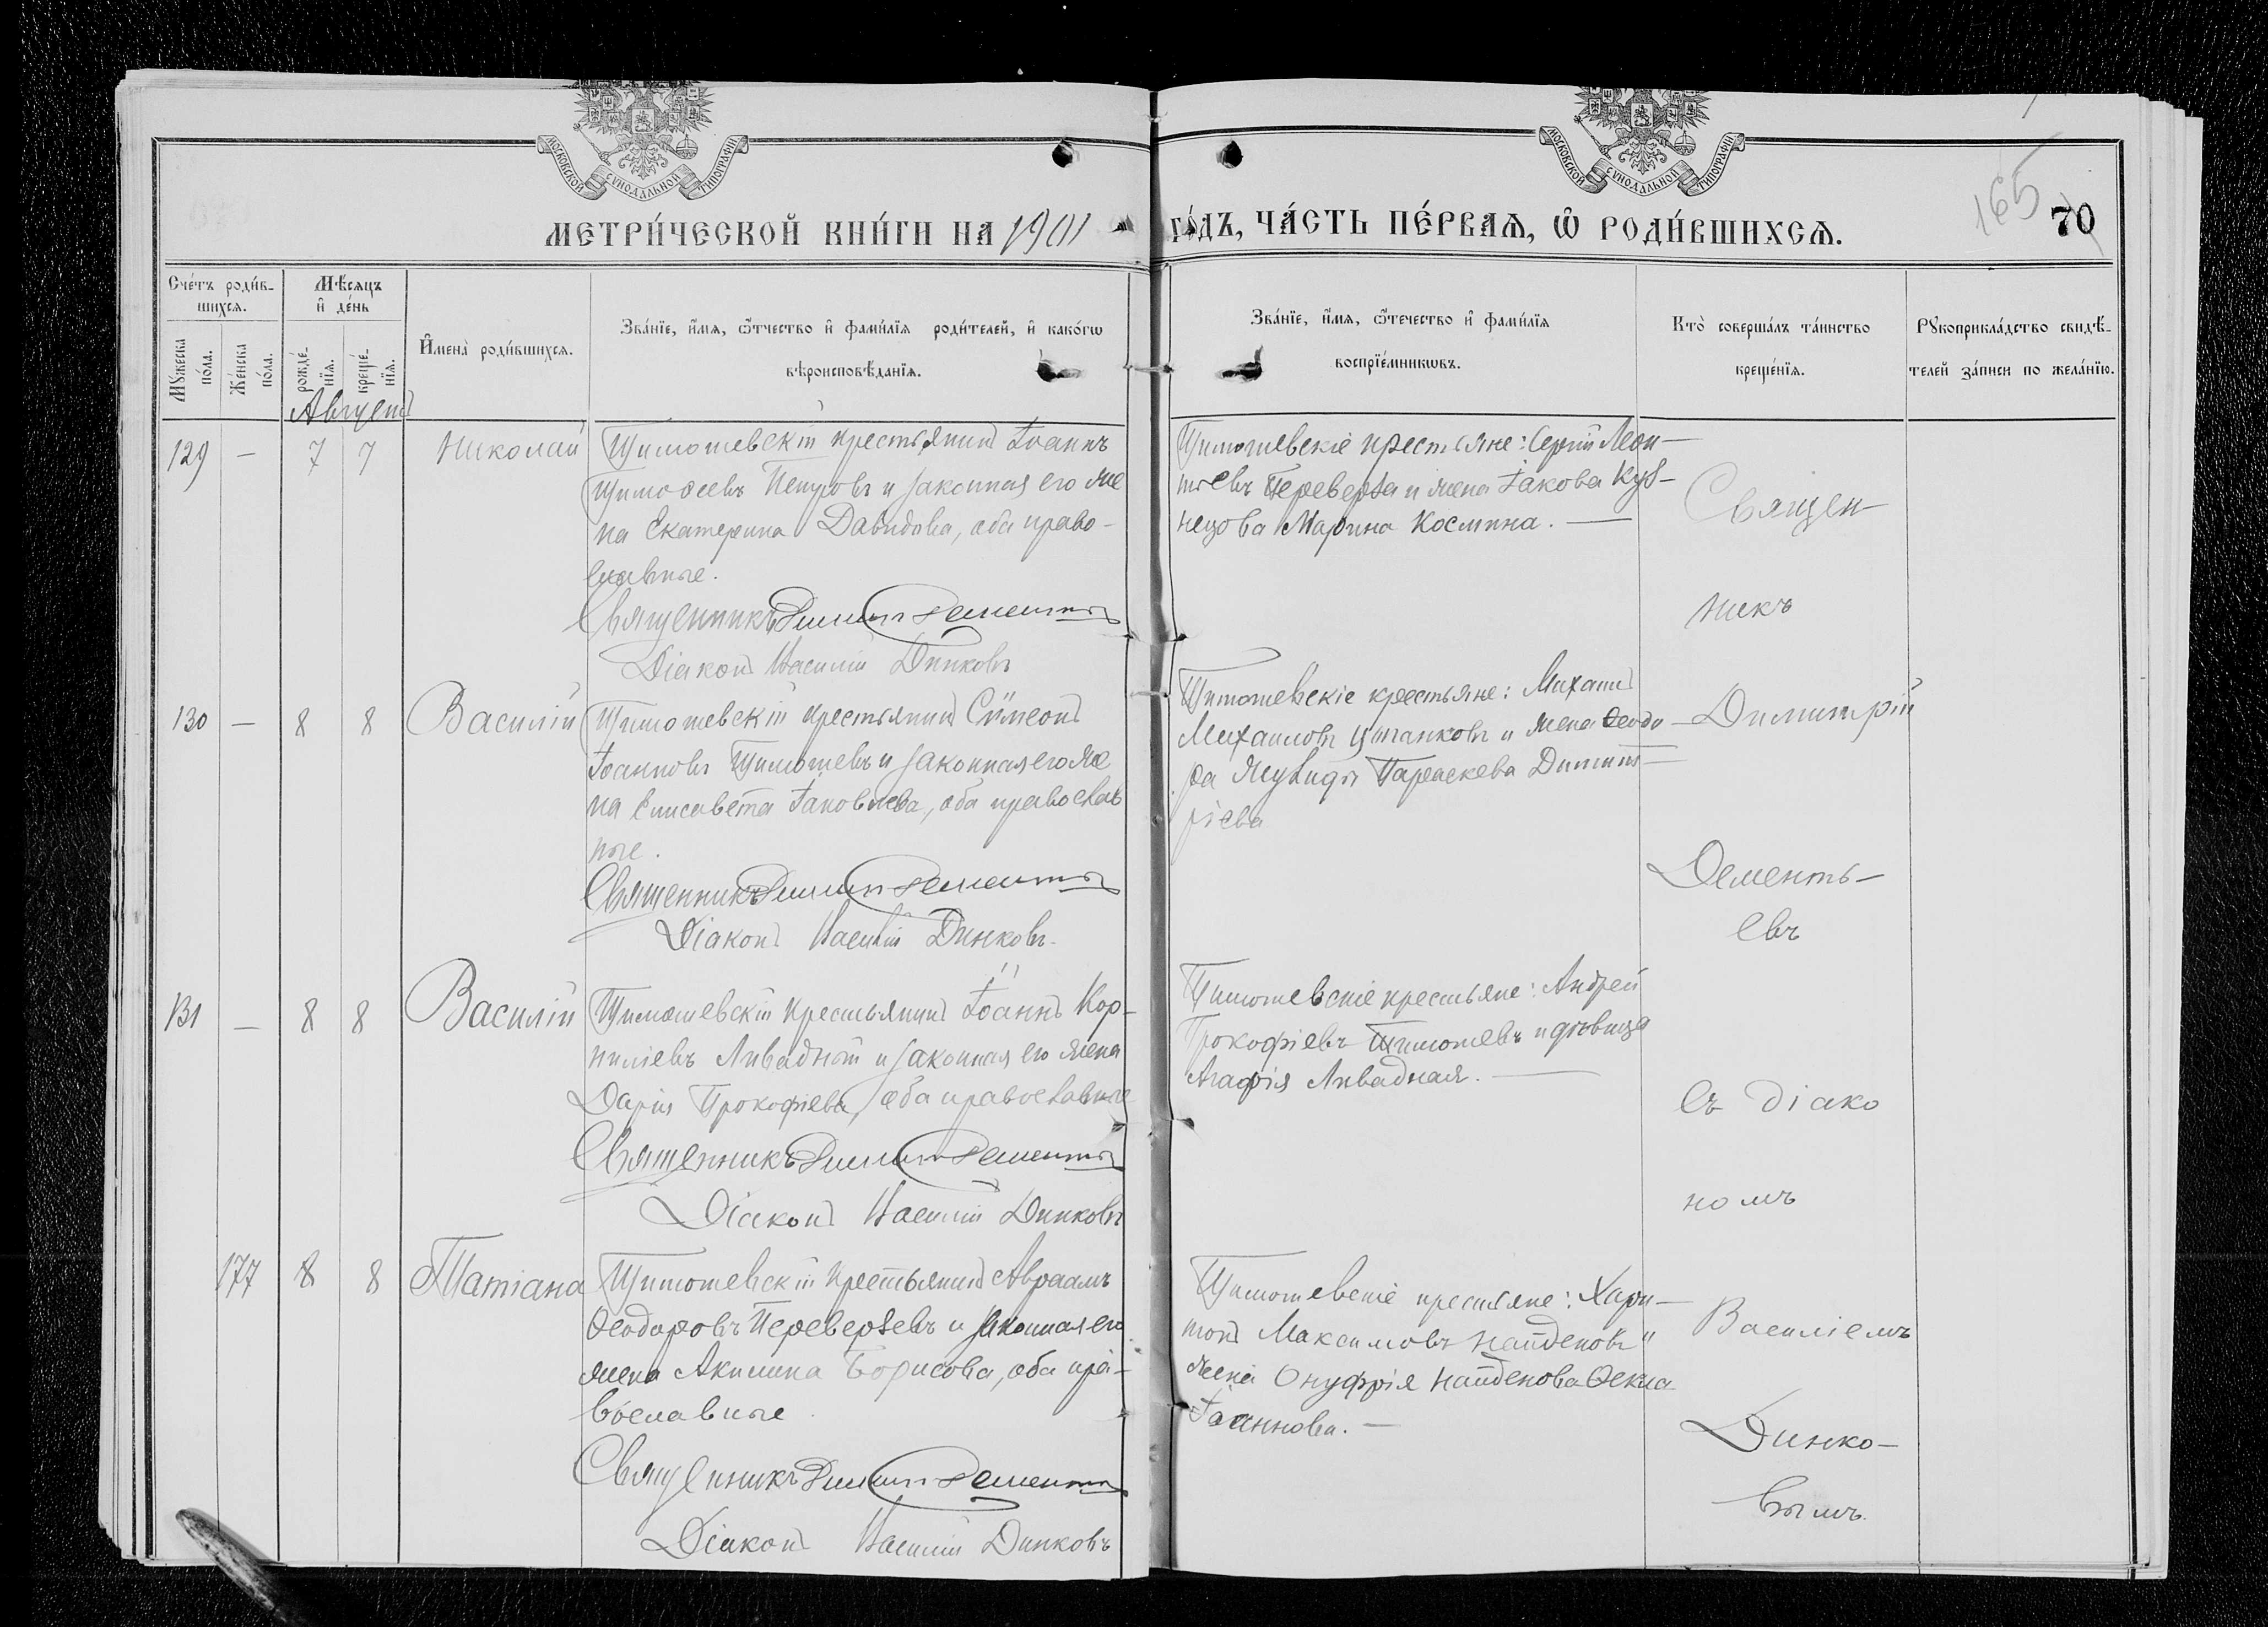 МОСКОВСКОЙ СУНОДАЛЬНОЙ ТИПОГРАФІИ
МОСКОВСКОЙ СУНОДАЛЬНОЙ ТИПОГРАФІИ
165
70
МЕТРИ́ЧЕСКОЙ КНИ́ГИ НА 1901 ГО́ДЪ, ЧА́СТЬ ПЕ́РВАѦ, Ѡ РОДИ́ВШИХСѦ.
Сче́тъ роди́в-
шихсѧ.
Мꙋ́жеска
по́ла.
Же́нска
по́ла.
Мѣ́сѧцъ
и҆ де́нь
рожде́-
нїѧ.
креще́-
нїѧ.
И҆мена̀ роди́вшихсѧ.
Зва́нїе, и҆́мѧ, ѻ҆́тчество и҆ фами́лїѧ роди́телей, и҆ како́гѡ
вѣроисповѣ́данїѧ.
Зва́нїе, и҆́мѧ, ѻ҆́течество и҆ фами́лїѧ
воспрїе́мникѡвъ.
Кто̀ соверша́лъ та́инство
креще́нїѧ.
Рꙋкоприкла́дство свидѣ́-
телей за́писи по жела́нїю.
Августъ
129 — 7 7 Николай
Тимошевскій крестьянинъ Іоаннъ
Тимоѳеевъ Петровъ и законная его же
на Екатерина Давидова, оба право-
славные.
Священникъ Димитрій Дементьевъ
Діаконъ Василій Динковъ
Тимошевскіе крестьяне: Сергій Леон-
тьевъ Переверза и жена Іакова Куз-
нецова Марина Космина. —
130 — 8 8 Василій
Тимошевскій крестьянинъ Сѷмеонъ
Іоанновъ Тимошевъ и законная его же
на Елисавета Іаковлева, оба православ
ные.
Священникъ Димитрій Дементьевъ
Діаконъ Василій Динковъ.
Тимошевскіе крестьяне: Михаилъ
Михаиловъ Цыганковъ и жена Ѳеодо-
ра Параскева Димит-
ріева
131 — 8 8 Василій
Тимошевскій крестьянинъ Іоаннъ Кор-
ниліевъ Ливадный и законная его жена
Дарія Прокофіева, оба православные
Священникъ Димитрій Дементьевъ
Діаконъ Василій Динковъ
Тимошевскіе крестьяне: Андрей
Прокофіевъ Тимошевъ и дѣвица
Агафія Ливадная. —
177 8 8 Татіана
Тимошевскій крестьянинъ Авраамъ
Ѳеодоровъ Переверзевъ и законная его
жена Акилина Борисова, оба пра-
вославные
Священникъ Димитрій Дементьевъ
Діаконъ Василій Динковъ
Тимошевскіе крестьяне: Хари-
тонъ Максимовъ Найденовъ и
жена Онуфрія Найденова Ѳекла
Іоаннова. —
Священ-
никъ
Димитрій
Дементь-
евъ
съ діако
номъ
Василіемъ
Динко-
вымъ.